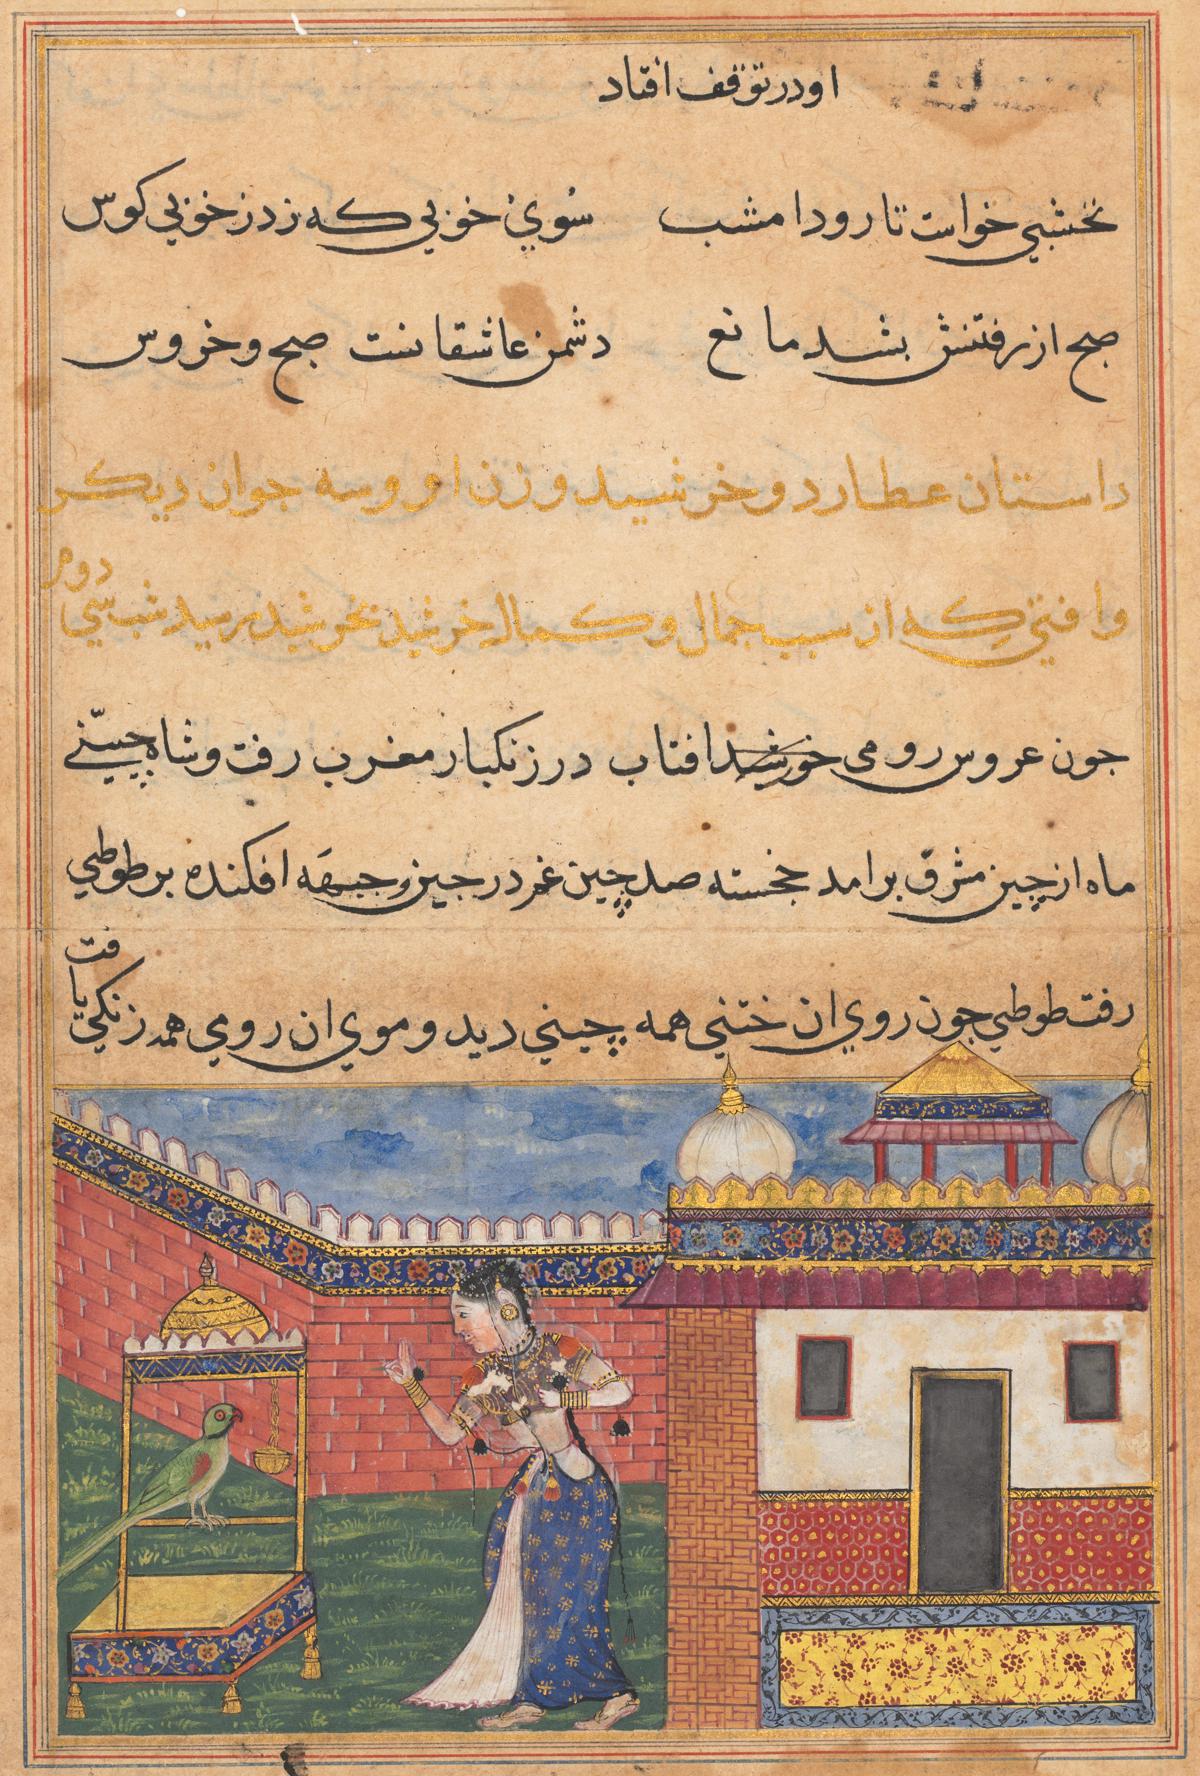 او در توقف افتاد
نخشبي خواست تا رود امشب سوي خوبي كه زد ز خوبي كوس
صبح از رفتنش بشد مانع دشمن عاشقانست صبح و خروس
داستان عطارد و خرشيد وزن او و سه جوان ديكر
وافتي كه از سبب جمال و كمال خرشيد بخرشيد رسيد شب سي دوم
جون عروس رومي خورشيد افتاب در زنكبار مغرب رفت و شاه چيني
ماه از چين مشرق برامد خجسته صد چين غم در جين و جبهه افكنده بر طوطي
رفت طوطي جون روي ان ختني همه چيني ديد و موي ان رومي همه زنكي يافت